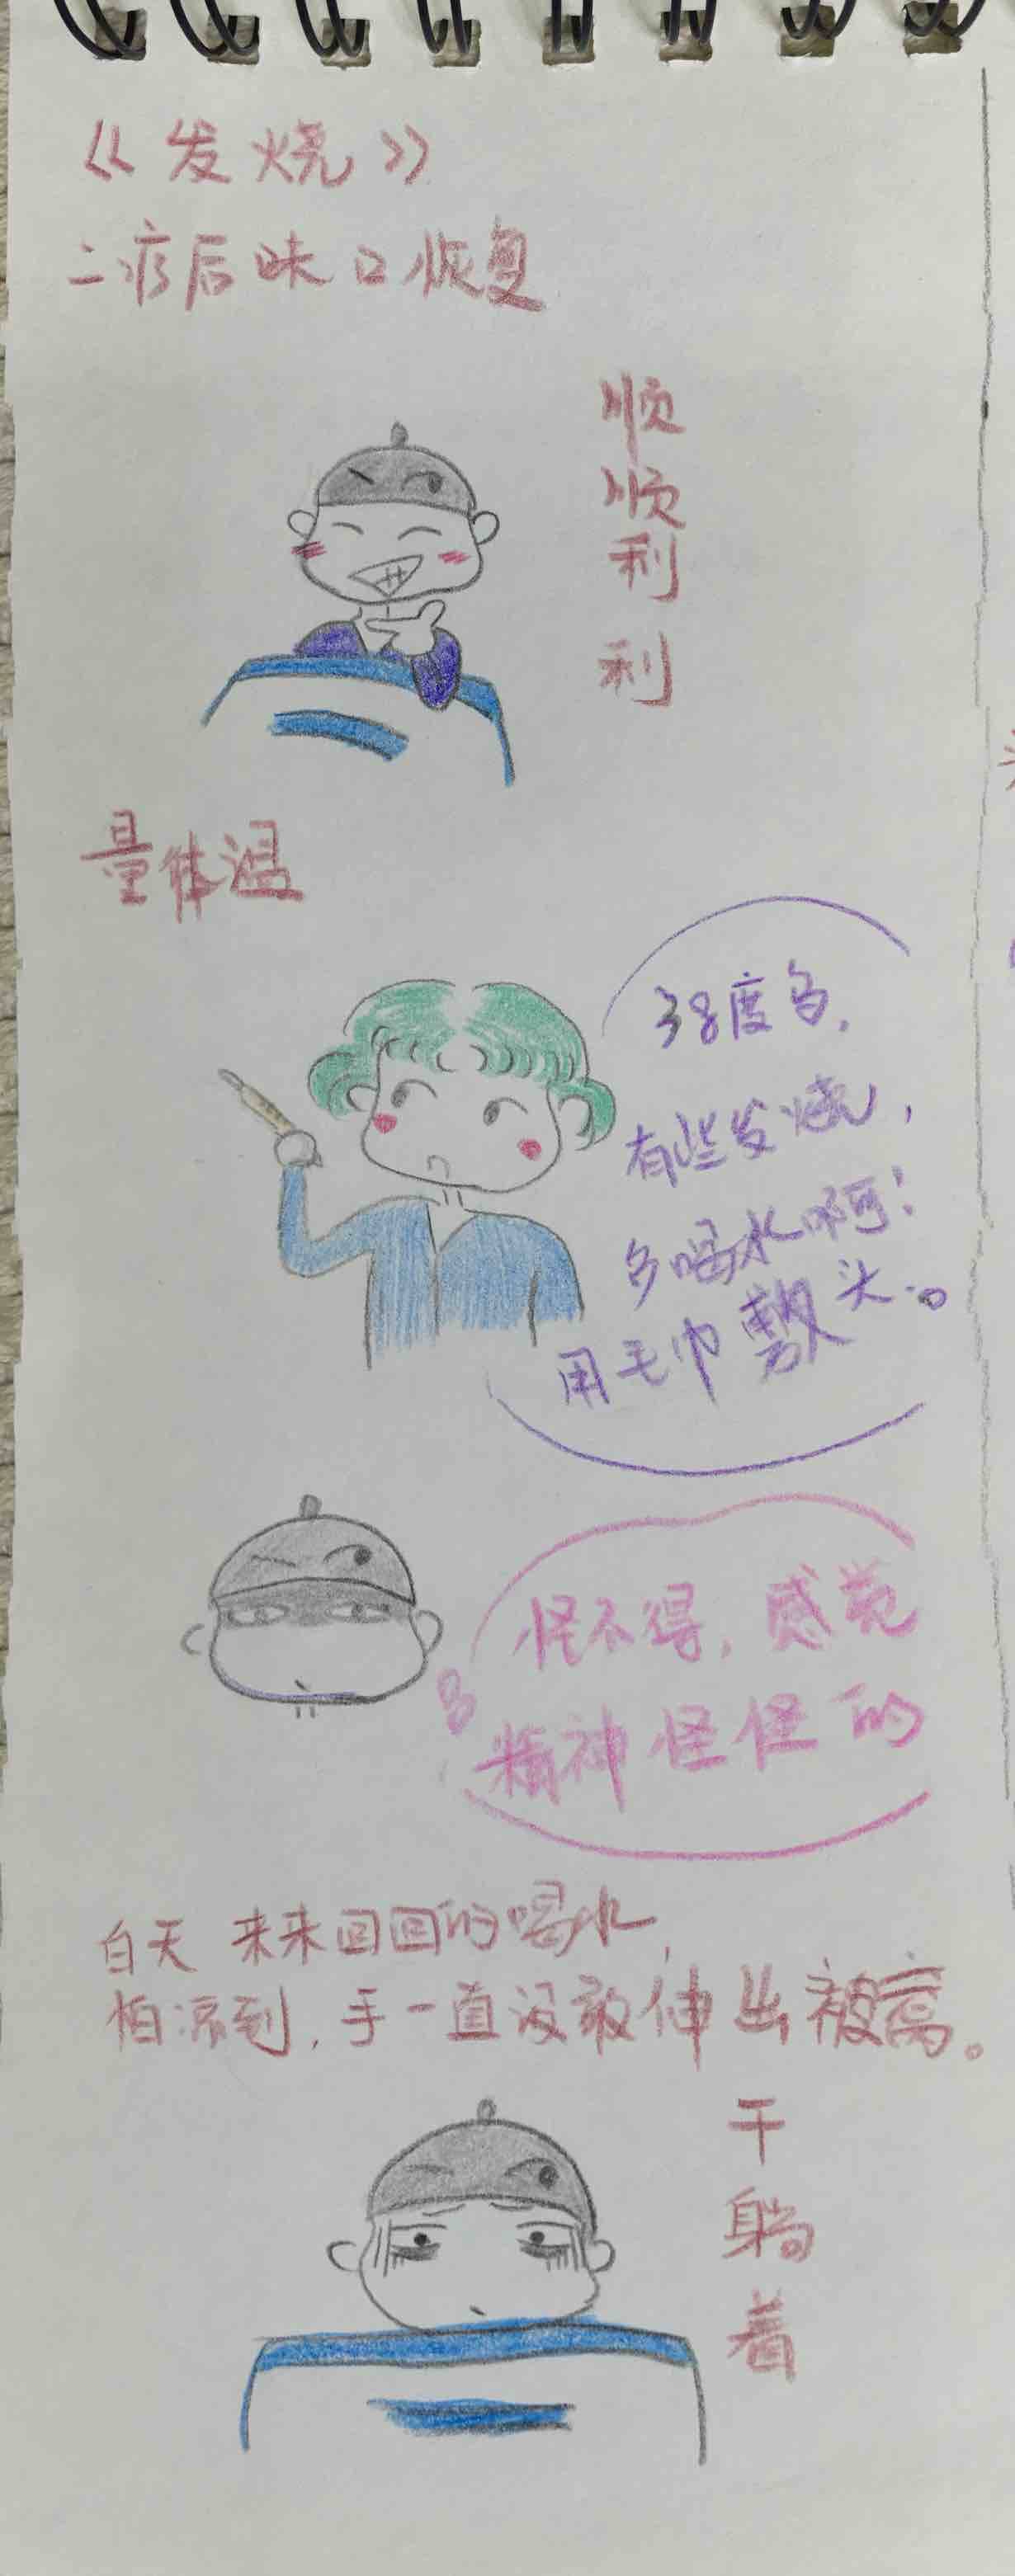 《发烧》
二疗后味口恢复
顺
顺
利
利
量体温
38度多，
有些发烧，
多喝水啊！
用毛巾敷头。
怪不得，感觉
精神怪怪的
白天 来来回回的喝水，
怕凉到，手一直没敢伸出被窝。
干
躺
着